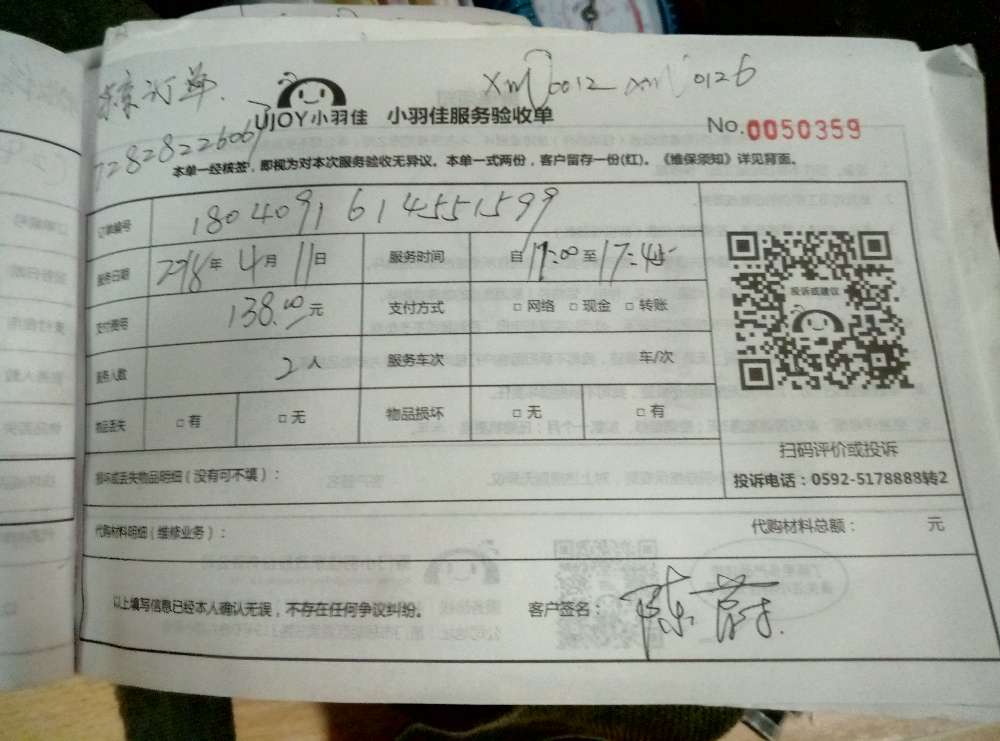 订单
xm0012 xm0126
72828226067
UJOY小羽佳 小羽佳服务验收单
No.0050359
本单一经核签，即视为对本次服务验收无异议。本单一式两份，客户留存一份(红)。《维保须知》详见背面。
订单编号 1804091614551599
服务日期 2018年4月11日 服务时间 自17:00至17:45
支付费用 138.00元 支付方式 □网络 □现金 □转账
服务人数 2人 服务车次 车/次
物品丢失 □有 □无 物品损坏 □无 □有
投诉或建议
扫码评价或投诉
投诉电话：0592-5178888转2
损坏或丢失物品明细（没有可不填）：
代购材料明细（维修业务）： 代购材料总额： 元
以上填写信息已经本人确认无误，不存在任何争议纠纷。 客户签名：陈